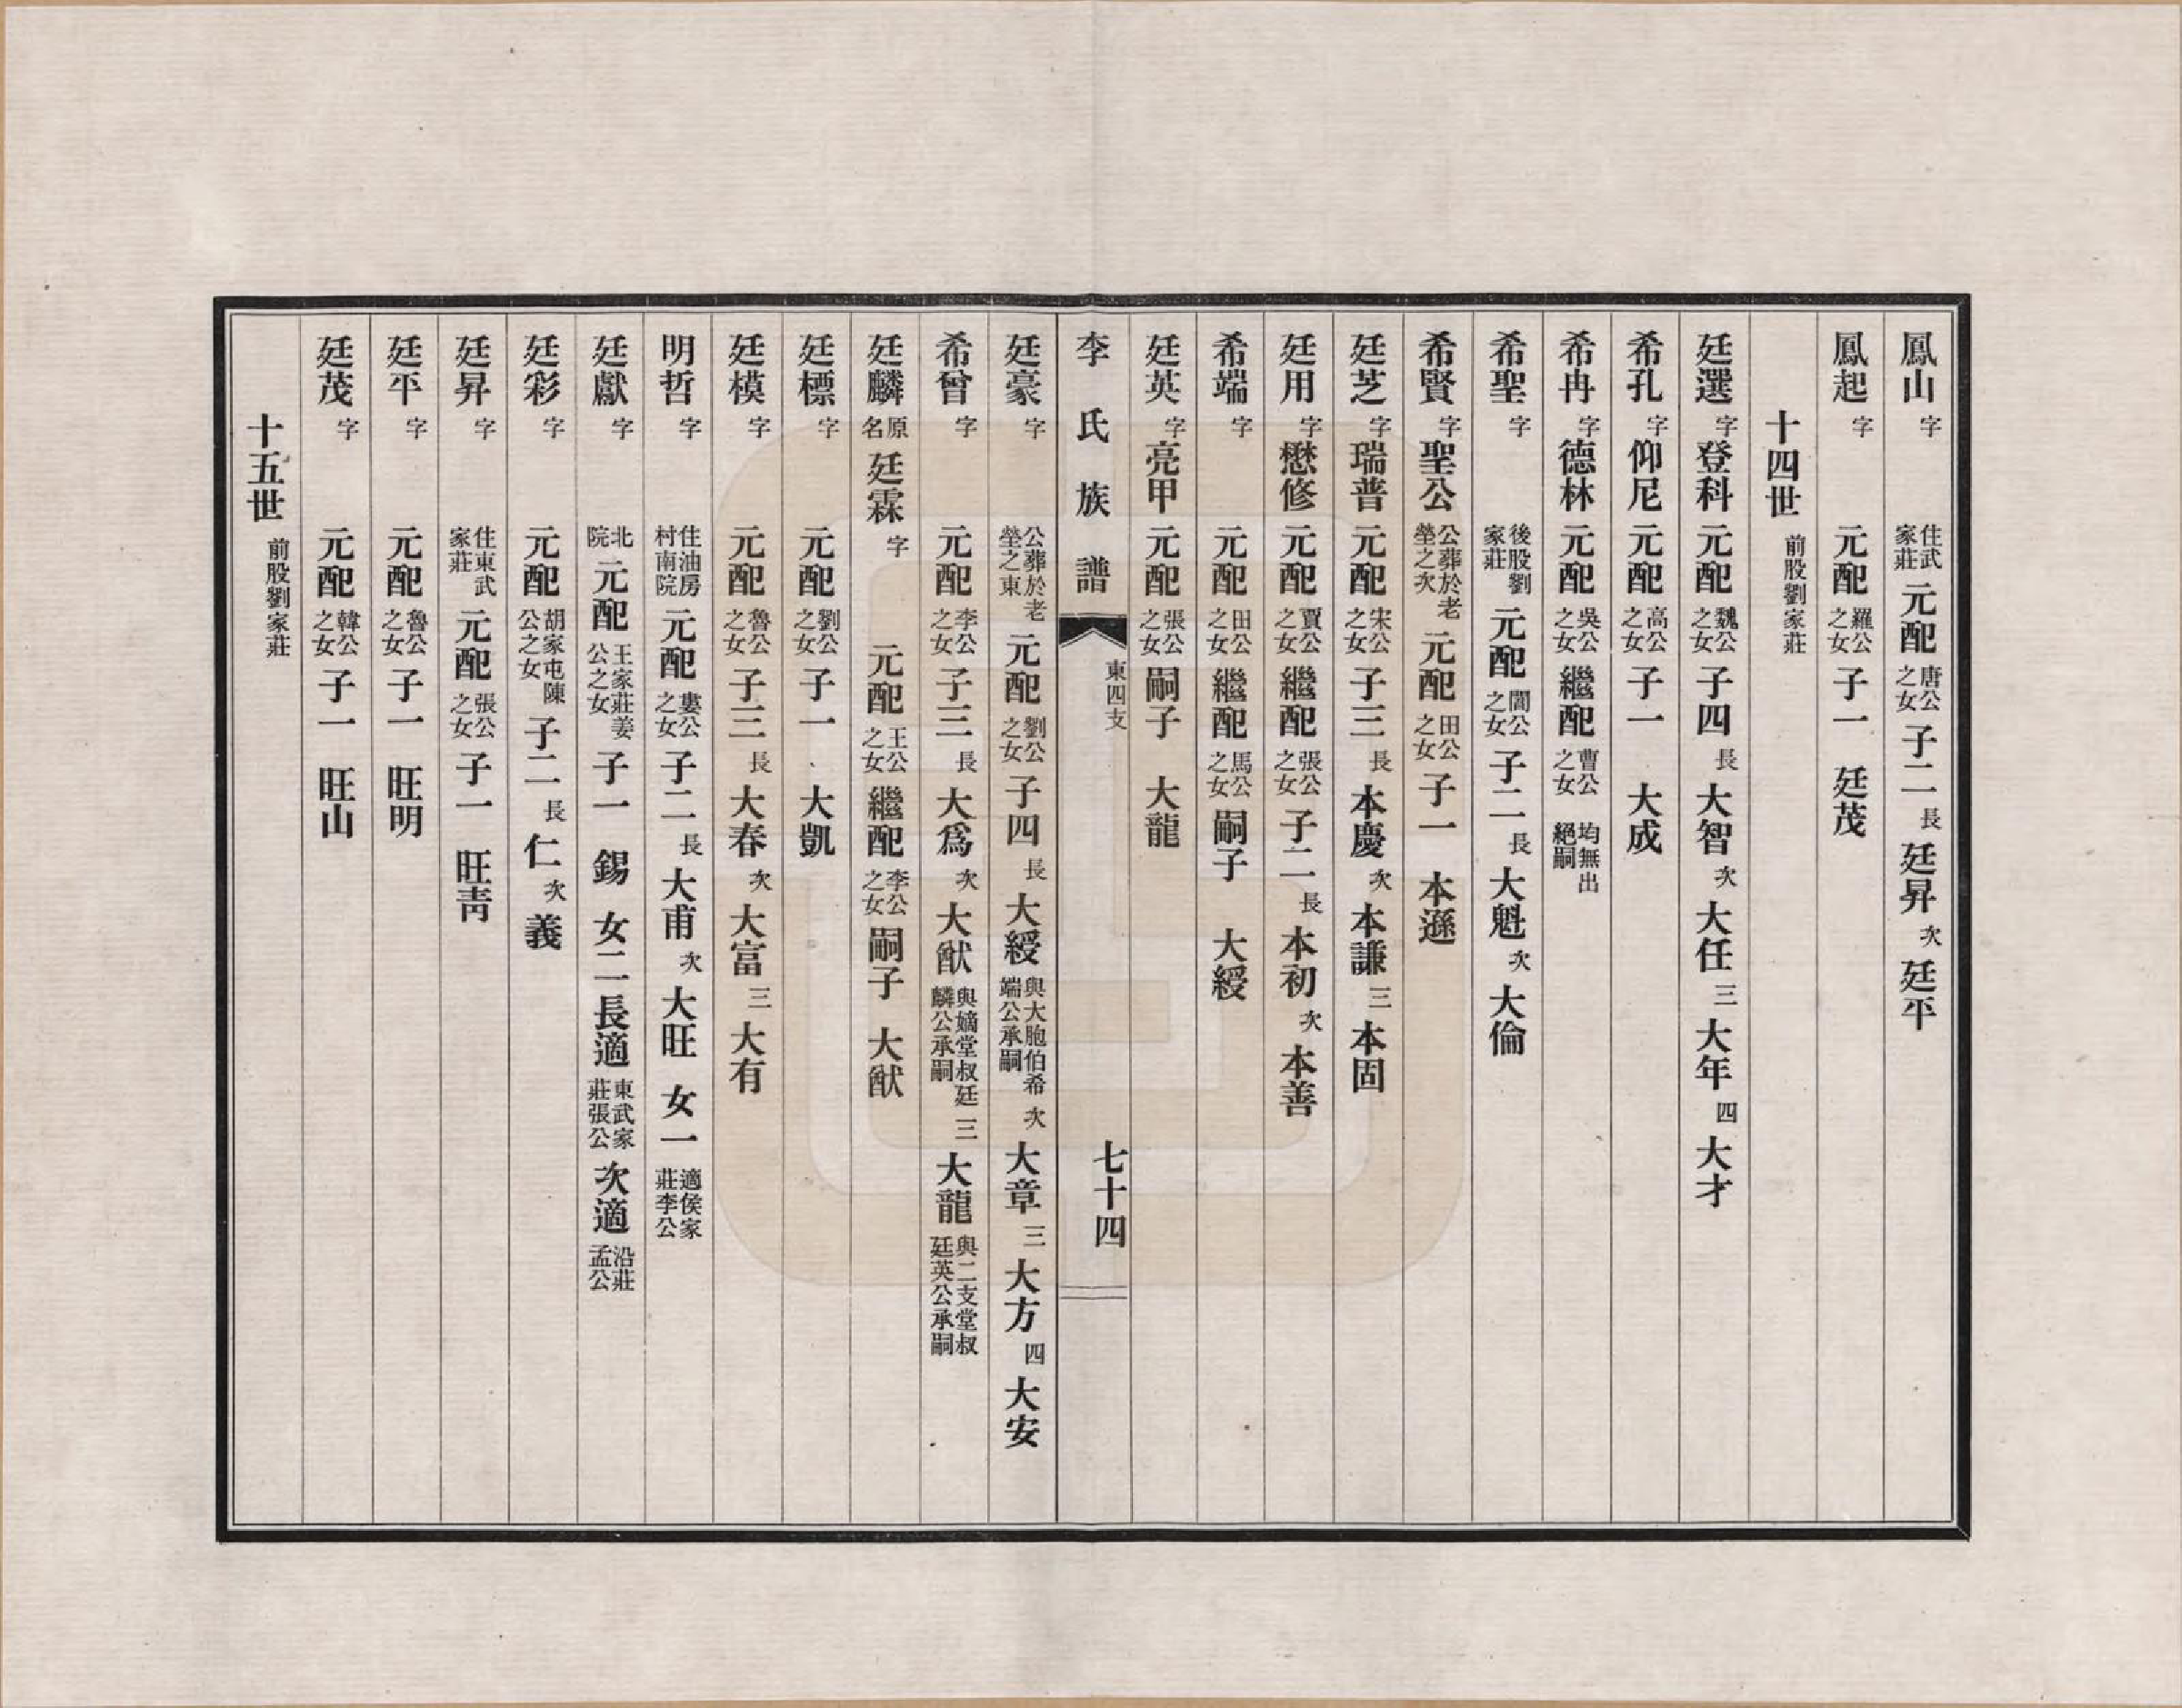 鳳山字 住武家莊 元配唐公之女 子二 長廷昇 次廷平
鳳起字 元配羅公之女 子一 廷茂
十四世 前股劉家莊
廷選字登科 元配魏公之女 子四 長大智 次大任 三大年 四大才
希孔字仰尼 元配高公之女 子一 大成
希冉字德林 元配吳公之女 繼配曹公之女 均無出絕嗣
希聖字 後股劉家莊 元配閻公之女 子二 長大魁 次大倫
希賢字聖公 公葬於老塋之次 元配田公之女 子一 本遜
廷芝字瑞普 元配宋公之女 子三 長本慶 次本謙 三本固
廷用字懋修 元配賈公之女 繼配張公之女 子二 長本初 次本善
希端字 元配田公之女 繼配馬公之女 嗣子 大綬
廷英字亮甲 元配張公之女 嗣子 大龍
李氏族譜 東四支 七十四
廷豪字 公葬於老塋之東 元配劉公之女 子四 長大綬 與大胞伯希端公承嗣 次大章 三大方 四大安
希曾字 元配李公之女 子三 長大爲 次大猷 與嫡堂叔廷麟公承嗣 三大龍 與二支堂叔廷英公承嗣
廷麟 原名廷霖 字 元配王公之女 繼配李公之女 嗣子 大猷
廷標字 元配劉公之女 子一 大凱
廷模字 元配魯公之女 子三 長大春 次大富 三大有
明哲字 住油房村南院 元配婁公之女 子二 長大甫 次大旺 女一 適侯家莊李公
廷獻字 北院 元配王家莊姜公之女 子一 錫 女二 長適東武家莊張公 次適沿莊孟公
廷彩字 元配胡家屯陳公之女 子二 長仁 次義
廷昇字 住東武家莊 元配張公之女 子一 旺靑
廷平字 元配魯公之女 子一 旺明
廷茂字 元配韓公之女 子一 旺山
十五世 前股劉家莊